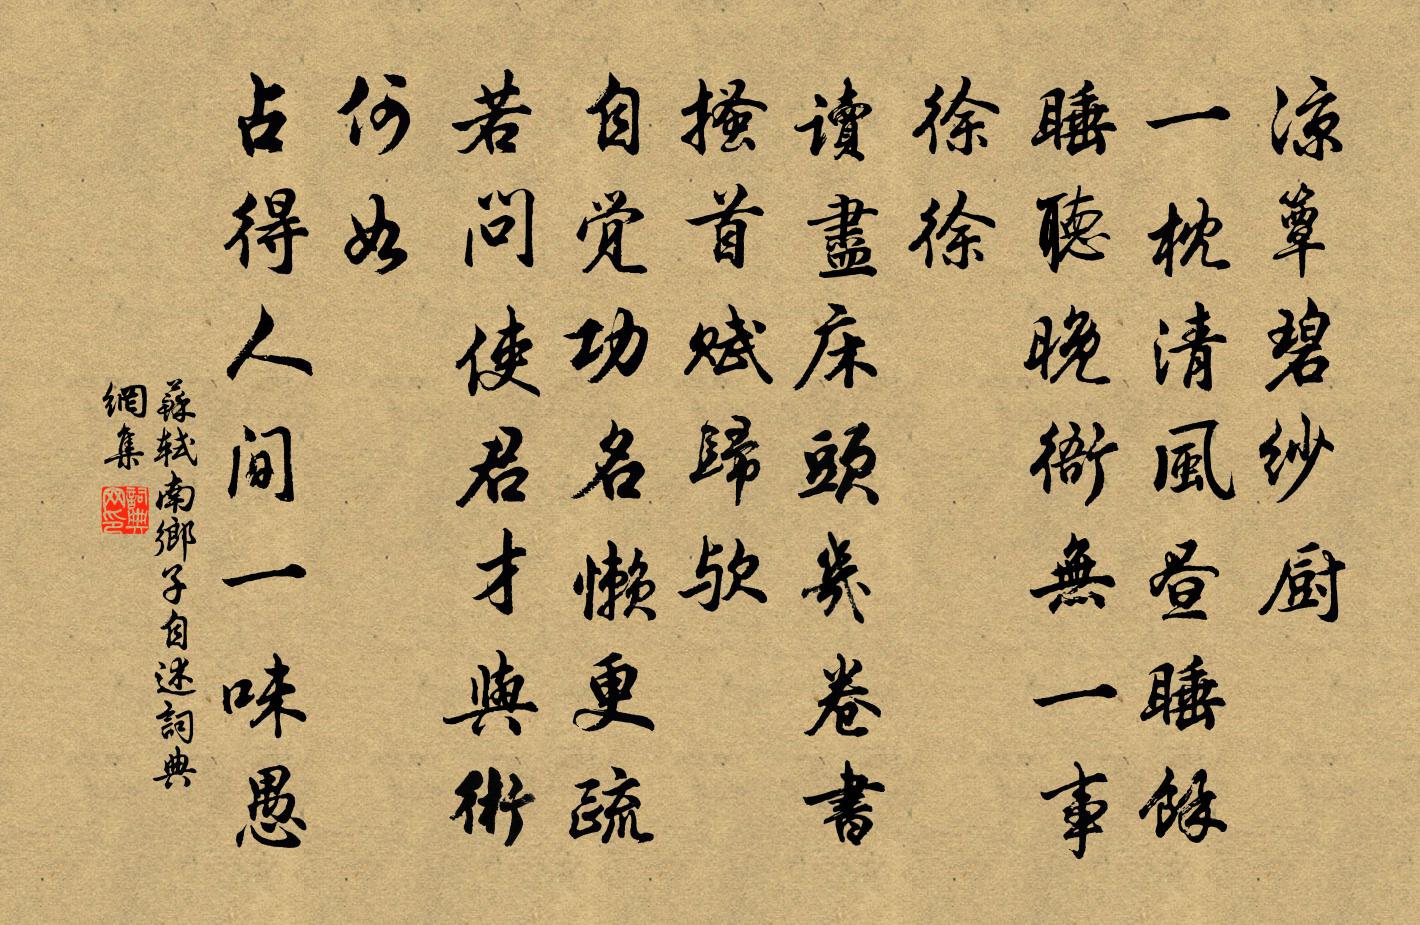 涼簟碧紗厨
一枕清風昼睡餘
睡聽晚衙無一事
徐徐
讀盡床頭幾卷書
搔首賦歸欤
自覚功名懶更疏
若問使君才與術
何如
占得人间一味愚
蘇軾南鄉子自述詞典
網集
詞典网印